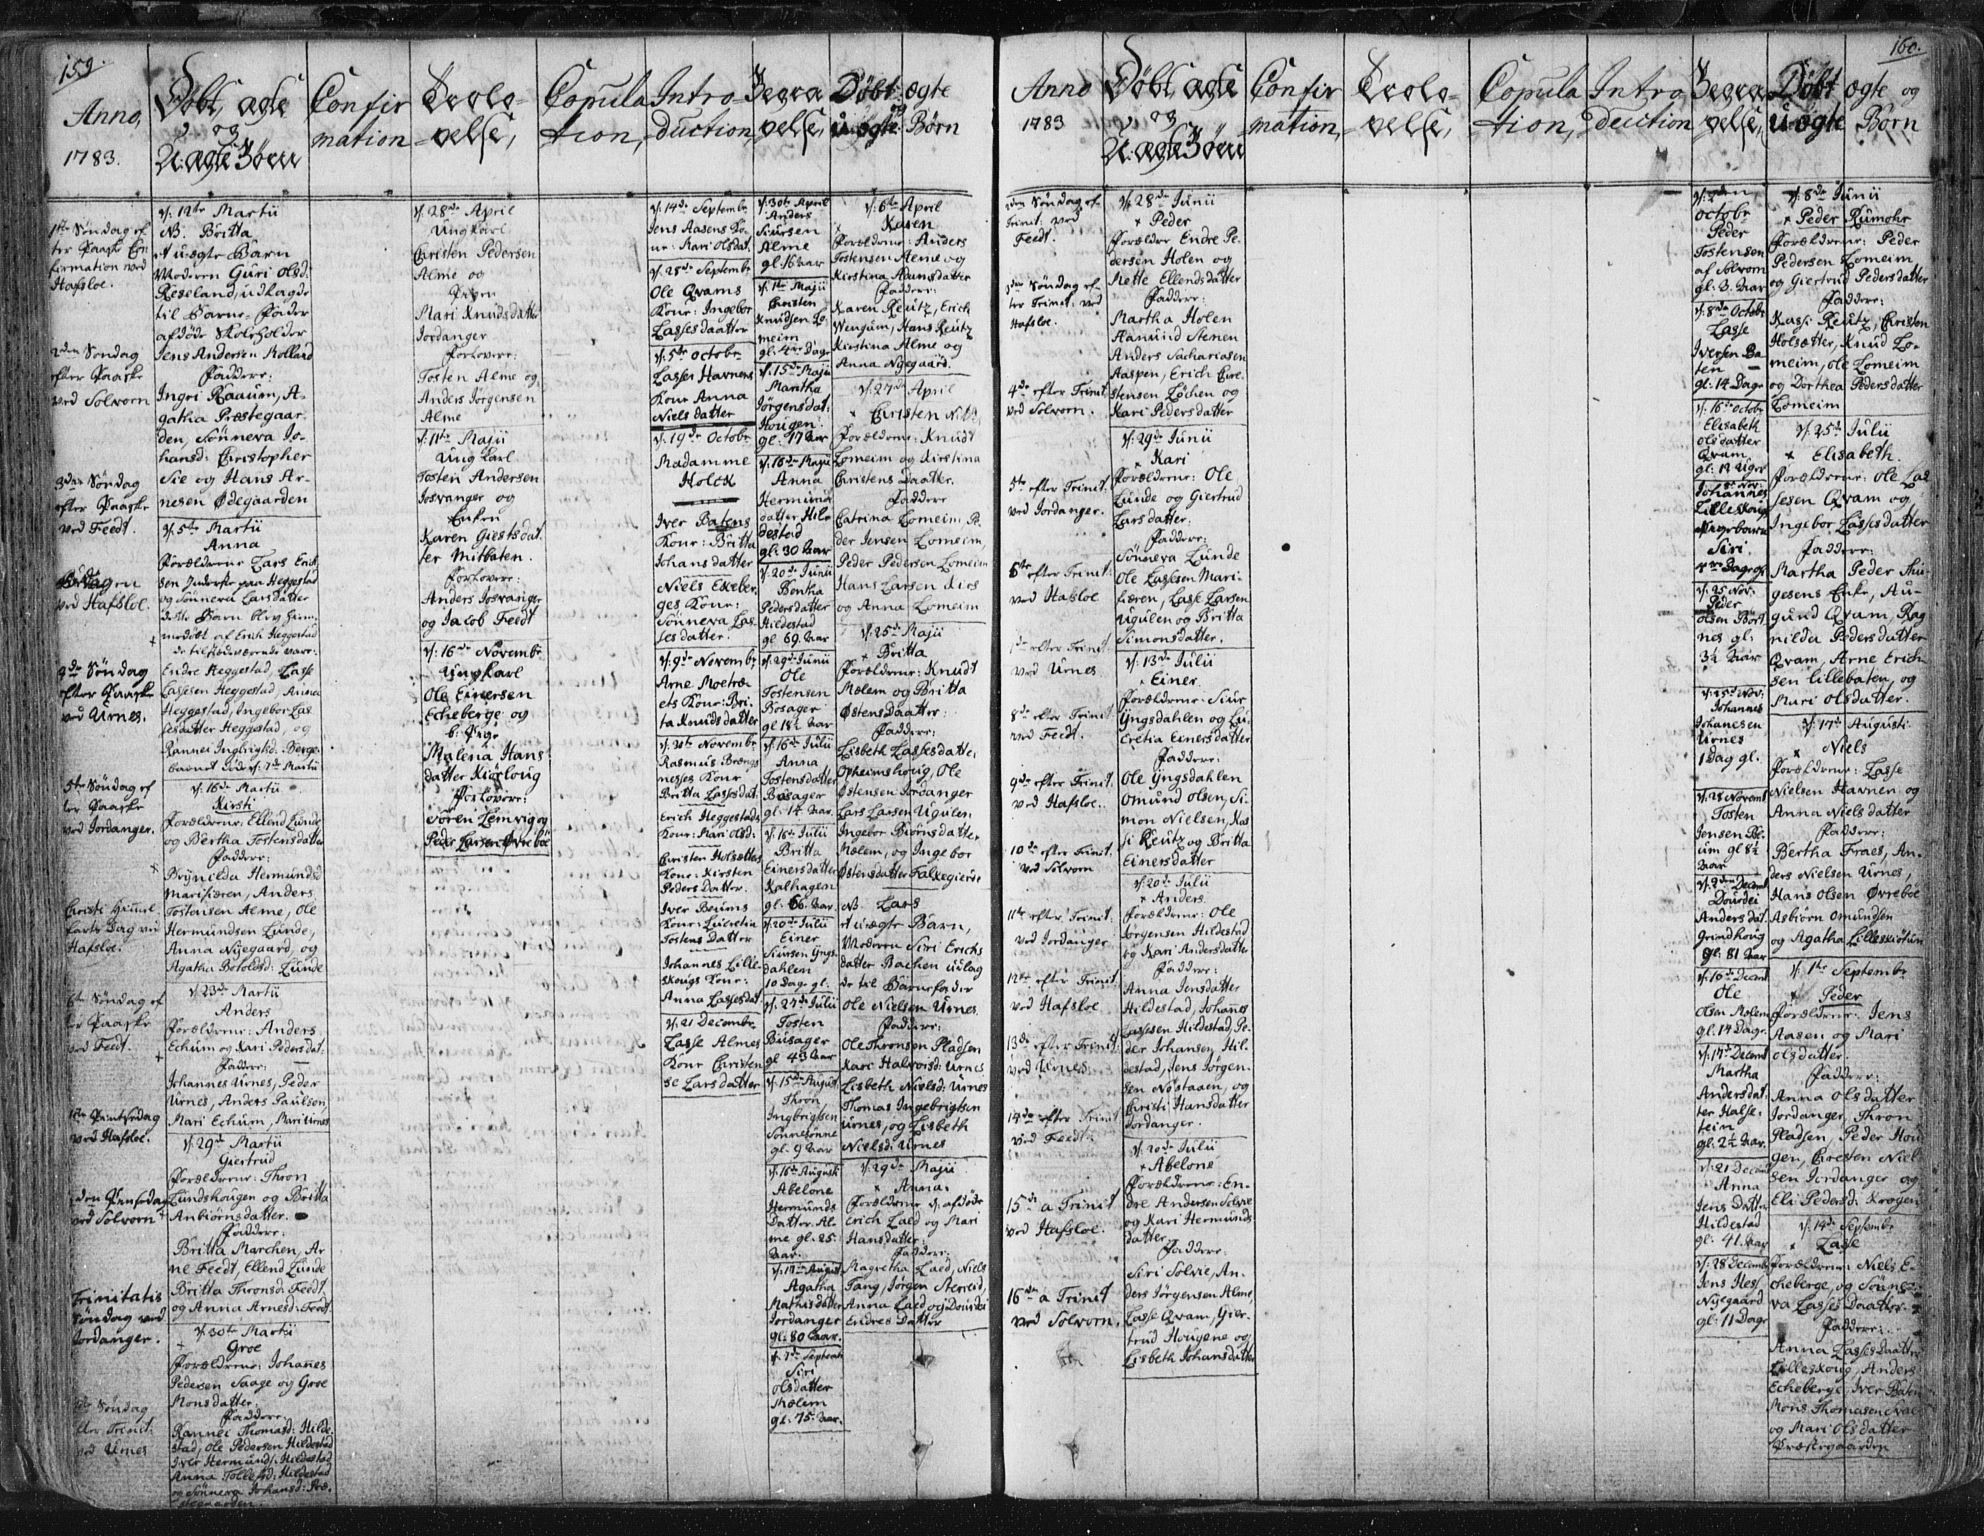 159.
Anno,
1783.
Døbt, ægte
og
U:ægte Børn
Confir
mation
Trolo-
velse,
Copula
tion,
Intro-
duction,
Begra
velse,
Døbt ægte
og
u:ægte Børn
1ste Søndag ef
ter Paaske Con
firmation ved
Hafsloe.
2den Søndag
efter Paaske
ved Solvorn
3die Søndag
efter Paaske
ved Feedt.
ved Hafsloe.
4de Søndag
efter Paaske
ved Urnes.
5te Søndag ef
ter Paaske
ved Jordanger.
Christi Himmel
farts Dag ved
Hafsloe.
6te Søndag ef
ter Paaske
ved Feedt.
1ste Pintsedag
ved Hafsloe.
2den Pintsedag
ved Solvorn
Trinitatis
Søndag ved
Jordanger.
Søndag
efter Trinit:
ved Urnes
d. 12te Martii
NB. Britta
et uægte Barn
Moderen Guri Olsd:
Reseland, udlagde
til Barne-Fader
afdøde Skoleholder
Jens Andersen Molland
Faddere:
Ingri Raaum, A-
gatha Præstegaar-
den, Sønneva Jo-
hansd: Christopher
Sie og Hans Ar-
nesen Ødegaarden
d. 5te Martii
Anna
Forældrene Lars Erich
sen Inderste paa Heggestad
og Sønneva Larsdatter
dette Barn blev hiem-
medøbt af Erich Heggestad
de tilstædeværende vare:
Endre Heggestad, Lasse
Lassesen Heggestad, Anna
Heggestad, Ingebor Las
sesdatter Heggestad, og
Rannei Ingbrigtsd. Berge
barnet døde d. 7de Martii
d. 16de Martii
Kirsti
Forældrene: Ellend Lunde
og Bertha Tostensdatter
Faddere:
Brynilda Hermundsd
Marifiæren, Anders
Tostensen Alme, Ole
Hermundsen Lunde,
Anna Nyegaard, og
Agatha Botolfsd: Lunde
d. 23de Martii
Anders
Forældrene: Anders
Echum og Kari Pedersdat:
Faddere:
Johannes Urnes, Peder
Urnes, Anders Paulsen,
Mari Echum, Mari Urnes
d. 29de Martii
Giertrud
Forældrene: Thron
Lundshougen og Britta
Anbiørnsdatter.
Faddere:
Britta Marchen, Ar
ne Feedt, Ellend Lunde
Britta Thronsd: Feedt,
og Anna Arnesd: Feedt
d. 30te Martii
Groe
Forældrene: Johanes
Pedersen Saage og Groe
Monsdatter:
Faddere:
Rannei Thomasd: Hilde
stad, Ole Pedersen Hildestad
Iver Hermunds: Hildestad
Anna Tollefsd: Hildestad
og Sønneva Johansd: Præ-
stegaarden.
d. 28de April
Ung Karl
Christen Pedersen
Alme og
Pigen
Mari Knudsdatter
Jordanger
Forlovere:
Tosten Alme og
Anders Jørgensen
Alme
d. 11te Maji
Ung Karl
Tosten Andersen
Josvanger og
Enken
Karen Giestsdat
ter Mitbaten.
Forlovere:
Anders Josvanger
og Jacob Feedt
d. 16de Novembr
Ung Karl
Ole Einersen
Echeberge og
b: Pige
Malena Hans
datter Kiørloug
Forlovere:
Søren Lemvig og
Peder Larsen Øvrebøe
d. 14de Septembr
Jens Aasens Ko-
ne: Kari Olsdat.
d. 28de Septembr
Ole Qvams
Kone: Ingebor
Lassesdaatter
d. 5te Octobr
Lasse Havnens
Kone Anna
Niels datter
d. 19de Octobr
Madamme
Holck
Iver Batens
Kone: Britta
Johansdatter
Niels Ekeber
ges Kone:
Sønneva Las-
sesdatter.
d. 9de Novembr
Arne Moetræ-
ets Kone: Bri-
ta Knudsdatter
Novembr
Rasmus Bræng-
nesses Kone
Britta Lassesdat:
Erich Heggestads
Kone: Mari Olsd:
Christen Holsætters
Kone: Kirsten
Peders Datter.
Iver Beums
Kone: Lucretia
Tostens Datter
Johannes Lille-
skougs Kone:
Anna Lassesdat:
d. 21 Decembr
Lasse Almes
Kone Christen
se Larsdatter
d. 30te April
Anders
Siursen
Alme
gl. 16 aar
d. 1ste Maji
Christen
Knudsen Lo-
meim
gl. 4re Dage
d. 15de Maji
Martha
Jørgensdat:
Hougen.
gl: 17 aar
d. 16de Maji
Anna
Hermunds
datter Hil-
destad
gl: 30 aar
d. 20de Junii
Bentha
Pedersdatter
Hildestad
gl 69. aar
d. 29de Junii
Ole
Tostensen
Bosager
gl 18½ aar
d. 16de Julii
Anna
Tostensdatter
Bosager
gl: 14 aar.
d. 16de Julii
Britta
Einersdatter
Kalhagen
gl: 66. aar.
d. 20de Julii
Einer
Siursen Yngs-
dahlen
10 Dage gl:
d. 27de Julii
Tosten
Busager
gl 43 aar
d. 15de August
Thron
Ingbrigtsen
Sønnesønne
gl: 9 aar
d. 16de August
Abelone
Hermunds
Datter Al-
me gl: 25
aar.
d. 17de August
Agatha
Mathisdatter
Jordanger
gl: 80 aar.
d. 7de Septembr
Siri
Olsdatter
Mølem
gl: 75 aar.
d. 6te April
Karen
Forældrene: Anders
Tostensen Alme og
Kirstina Hansdatter
Faddere:
Karen Reutz, Erich
Wengum, Hans Reutz
Kirstina Alme og
Anna Nyegaard.
d. 27de April
Christen
Forældrene: Knudt
Lomeim og Kirstina
Christens Daatter.
Faddere
Catrina Lomeim Pe-
der Jensen Lomeim,
Peder Pedersen Lomeim
Hans Larsen
og Anna Lomeim
d. 25de Maji
Britta
Forældrene: Knudt
Mølem og Britta
Østensdaatter:
Faddere:
Lisbeth Lassesdatter
Opheimshoug, Ole
Østensen Jordanger
Lars Larsen Ugulen
Ingebor Biørnsdatter
Mølem, og Ingebor
Østensdatter Falkegierde
NB. Lars
et uægte Barn,
Moderen Siri Erichs
datter Bachen udlag
de til Barnefader
Ole Nielsen Urnes.
Faddere:
Ole Thronsen Pladsen
Kari Halvorsd: Urnes
Lisbeth Nielsd: Urnes
Thomas Ingebrigtsen
Urnes, og Lisbeth
Nielsd: Urnes
d. 29de Maji
Anna
Forældrene d. afdøde
Erich Laed og Mari
Hansdatter:
Faddere:
Magretha Laed, Niels
Tang, Jørgen Stereid,
Anna Laed og Dourdei
Endres Datter
160.
Anno
1783
Døbt, ægte
og
U:ægte Børn
Confir
mation,
Trolo-
velse,
Copula
tion,
Intro,
duction
Begra
velse,
Døbt ægte og
u:ægte Børn
2den Søndag ef
Trinit; ved
Feedt.
3die Søndag ef
ter Trinit: ved
Hafsloe.
4de efter Trinit
ved Solvorn.
5te efter Trinit:
ved Jordanger.
6te efter Trinit:
ved Hafsloe
7de efter Trinit:
ved Urnes
8de efter Trinit
ved Feedt.
9de efter Trinit:
ved Hafsloe.
10de efter Trinit.
ved Solvorn
11te efter Trinit:
ved Jordanger
12te efter Trinit
ved Hafsloe
13de efter Trinit
ved Urnes
14de efter Trinit
ved Feedt
15de a Trinit
ved Hafsloe.
16de a Trinit
ved Solvorn.
d. 28de Junii
Peder
Forældre Endre Pe-
dersen Holen og
Mette Ellendsdatter
Faddere:
Martha Holen
Aamund Stenen
Anders Sachariasen
Aaspen, Erich Chri-
stensen Løchen og
Kari Pedersdatter
d. 29de Junii
Kari
Forældrene: Ole
Lunde og Giertrud
Larsdatter.
Faddere:
Sønneva Lunde
Ole Lassesen Mari-
fiæren, Lasse Larsen
Ugulen og Britta
Simonsdatter.
d. 13de Julii
Einer.
Forældrene: Siur
Yngsdahlen og Lu-
cretia Einersdatter
Faddere:
Ole Yngsdahlen
Omund Olsen, Si-
mon Nielsen, Kas
si Reutz og Britta
Einersdatter
d. 20de Julii
Anders.
Forældrene: Ole
Jørgensen Hildestad
og Kari Andersdatter
Faddere:
Anna Jensdatter
Hildestad, Johanes
Lassesen Hildestad, Pe-
der Johansen Hil-
destad, Jens Jørgen-
sen Nøstaaen, og
Christi Hansdatter
Jordanger.
d. 20de Julii
Abelone
Forældrene: En-
dre Andersen Solvie
og Kari Hermunds
datter.
Faddere:
Siri Solvie, An-
ders Jørgensen Alme,
Lasse Qvam, Gier-
trud Hougene og
Lisbeth Johansdatter
d. 2den
Octobr
Peder
Tostensen
af Solvorn
gl: 3. aar
d. 8de Octobr
Lasse
Iversen Ba-
ten
gl: 14 Dage
d. 16de Octobr
Elisabeth
Olsdatter
Qvam
gl: 12 Uger
Johannes
Lilleskougs
Siri.
d. 25 Nov:
Peder
Olsen Børt
nes gl:
3½ aar
d. 25de Nov:
Johannes
Johanesen
Urnes
1 Dag gl.
d. 28 Novemb
Tosten
Jensen Be-
um gl 8½
aar
d. 2den Decemb
Dourdei
Anders dat.
Grindhoug
gl: 81 aar
d. 16de Decemb
Ole
Olsen Mølem
gl. 14 Dage
d. 17de Decemb
Martha
Andersdat-
ter Halse-
tein
gl: 2½ aar
d. 21 Decemb
Anna
Jens Datter
Hildestad
gl: 41. aar
d. 28 Decemb
Jens
Nyegaard
gl: 11 Dage
d. 8de Junii
Peder Rumohr
Forældrene: Peder
Pedersen Lomeim
og Giertrud Pedersdatter
Faddere:
Kassi Reutz, Christen
Holsætter, Knud Lo-
meim, Ole Lomeim
og Dorthea Pedersdatter
Lomeim
d. 25de Julii
Elisabeth.
Forældrene: Ole Las
sesen Qvam og
Ingebor Lassesdatter
Faddere:
Martha Peder Thu-
gesens Enke, Au-
gund Qvam, Rag
nilda Pedersdatter
Qvam, Arne Erich
sen Lillebaten, og
Mari Olsdatter.
d. 17de Augusti
Niels
Forældrene: Lasse
Nielsen Havnen og
Anna Niels datter
Faddere:
Bertha Fraes, An-
ders Nielsen Urnes,
Hans Olsen Øvrebøe
Asbiørn Omundsen
og Agatha Lillesiøtun
d. 1ste Septembr
Peder
Forældrene: Jens
Aasen og Mari
Olsdatter.
Faddere:
Anna Olsdatter
Jordanger, Thron
Pladsen, Peder Hou
gen, Christen Niel-
sen Jordanger og
Eli Pedersd: Krogen
d. 14de Septembr
Lasse
Forældrene: Niels E-
cheberge, og Sønne-
va Lasses Daatter
Faddere:
Anna Lassesdaatter
Lilleskoug, Anders
Echeberge, Iver Baten
Mons Thomasen
og Mari Olsdatter
Præstegaarden